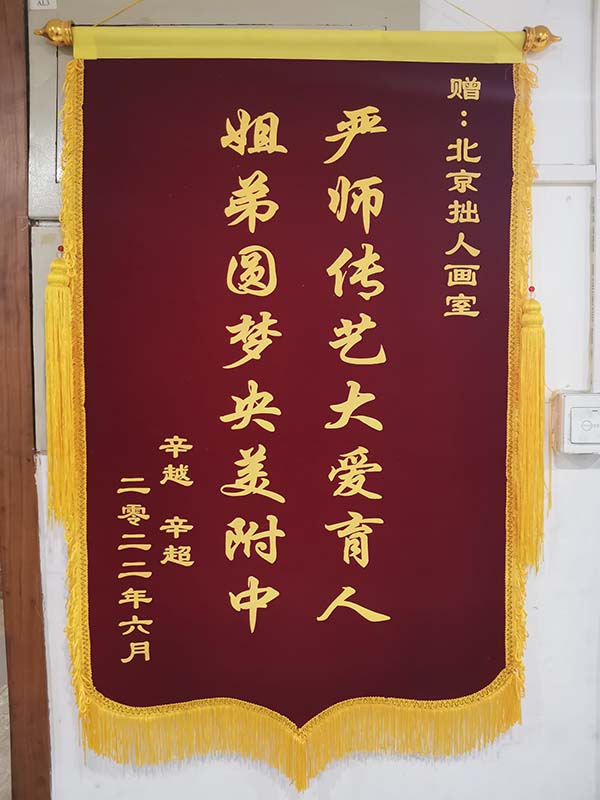 赠：北京拙人画室
严师传艺大爱育人
姐弟圆梦央美附中
辛越 辛超
二零二二年六月
AL3